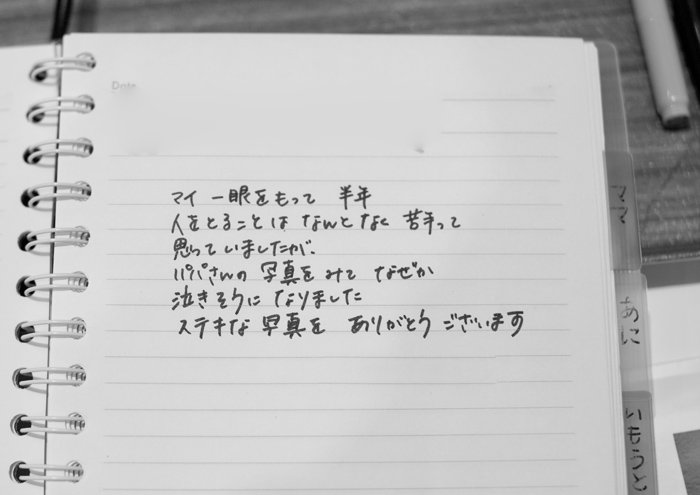 Date
マイ 一眼をもって 半年
人をとることは なんとなく 苦手って
思っていましたが、
パパさんの 写真をみて なぜか
泣きそうに なりました
ステキな 写真を ありがとう ございます
ママ
あに
いもうと